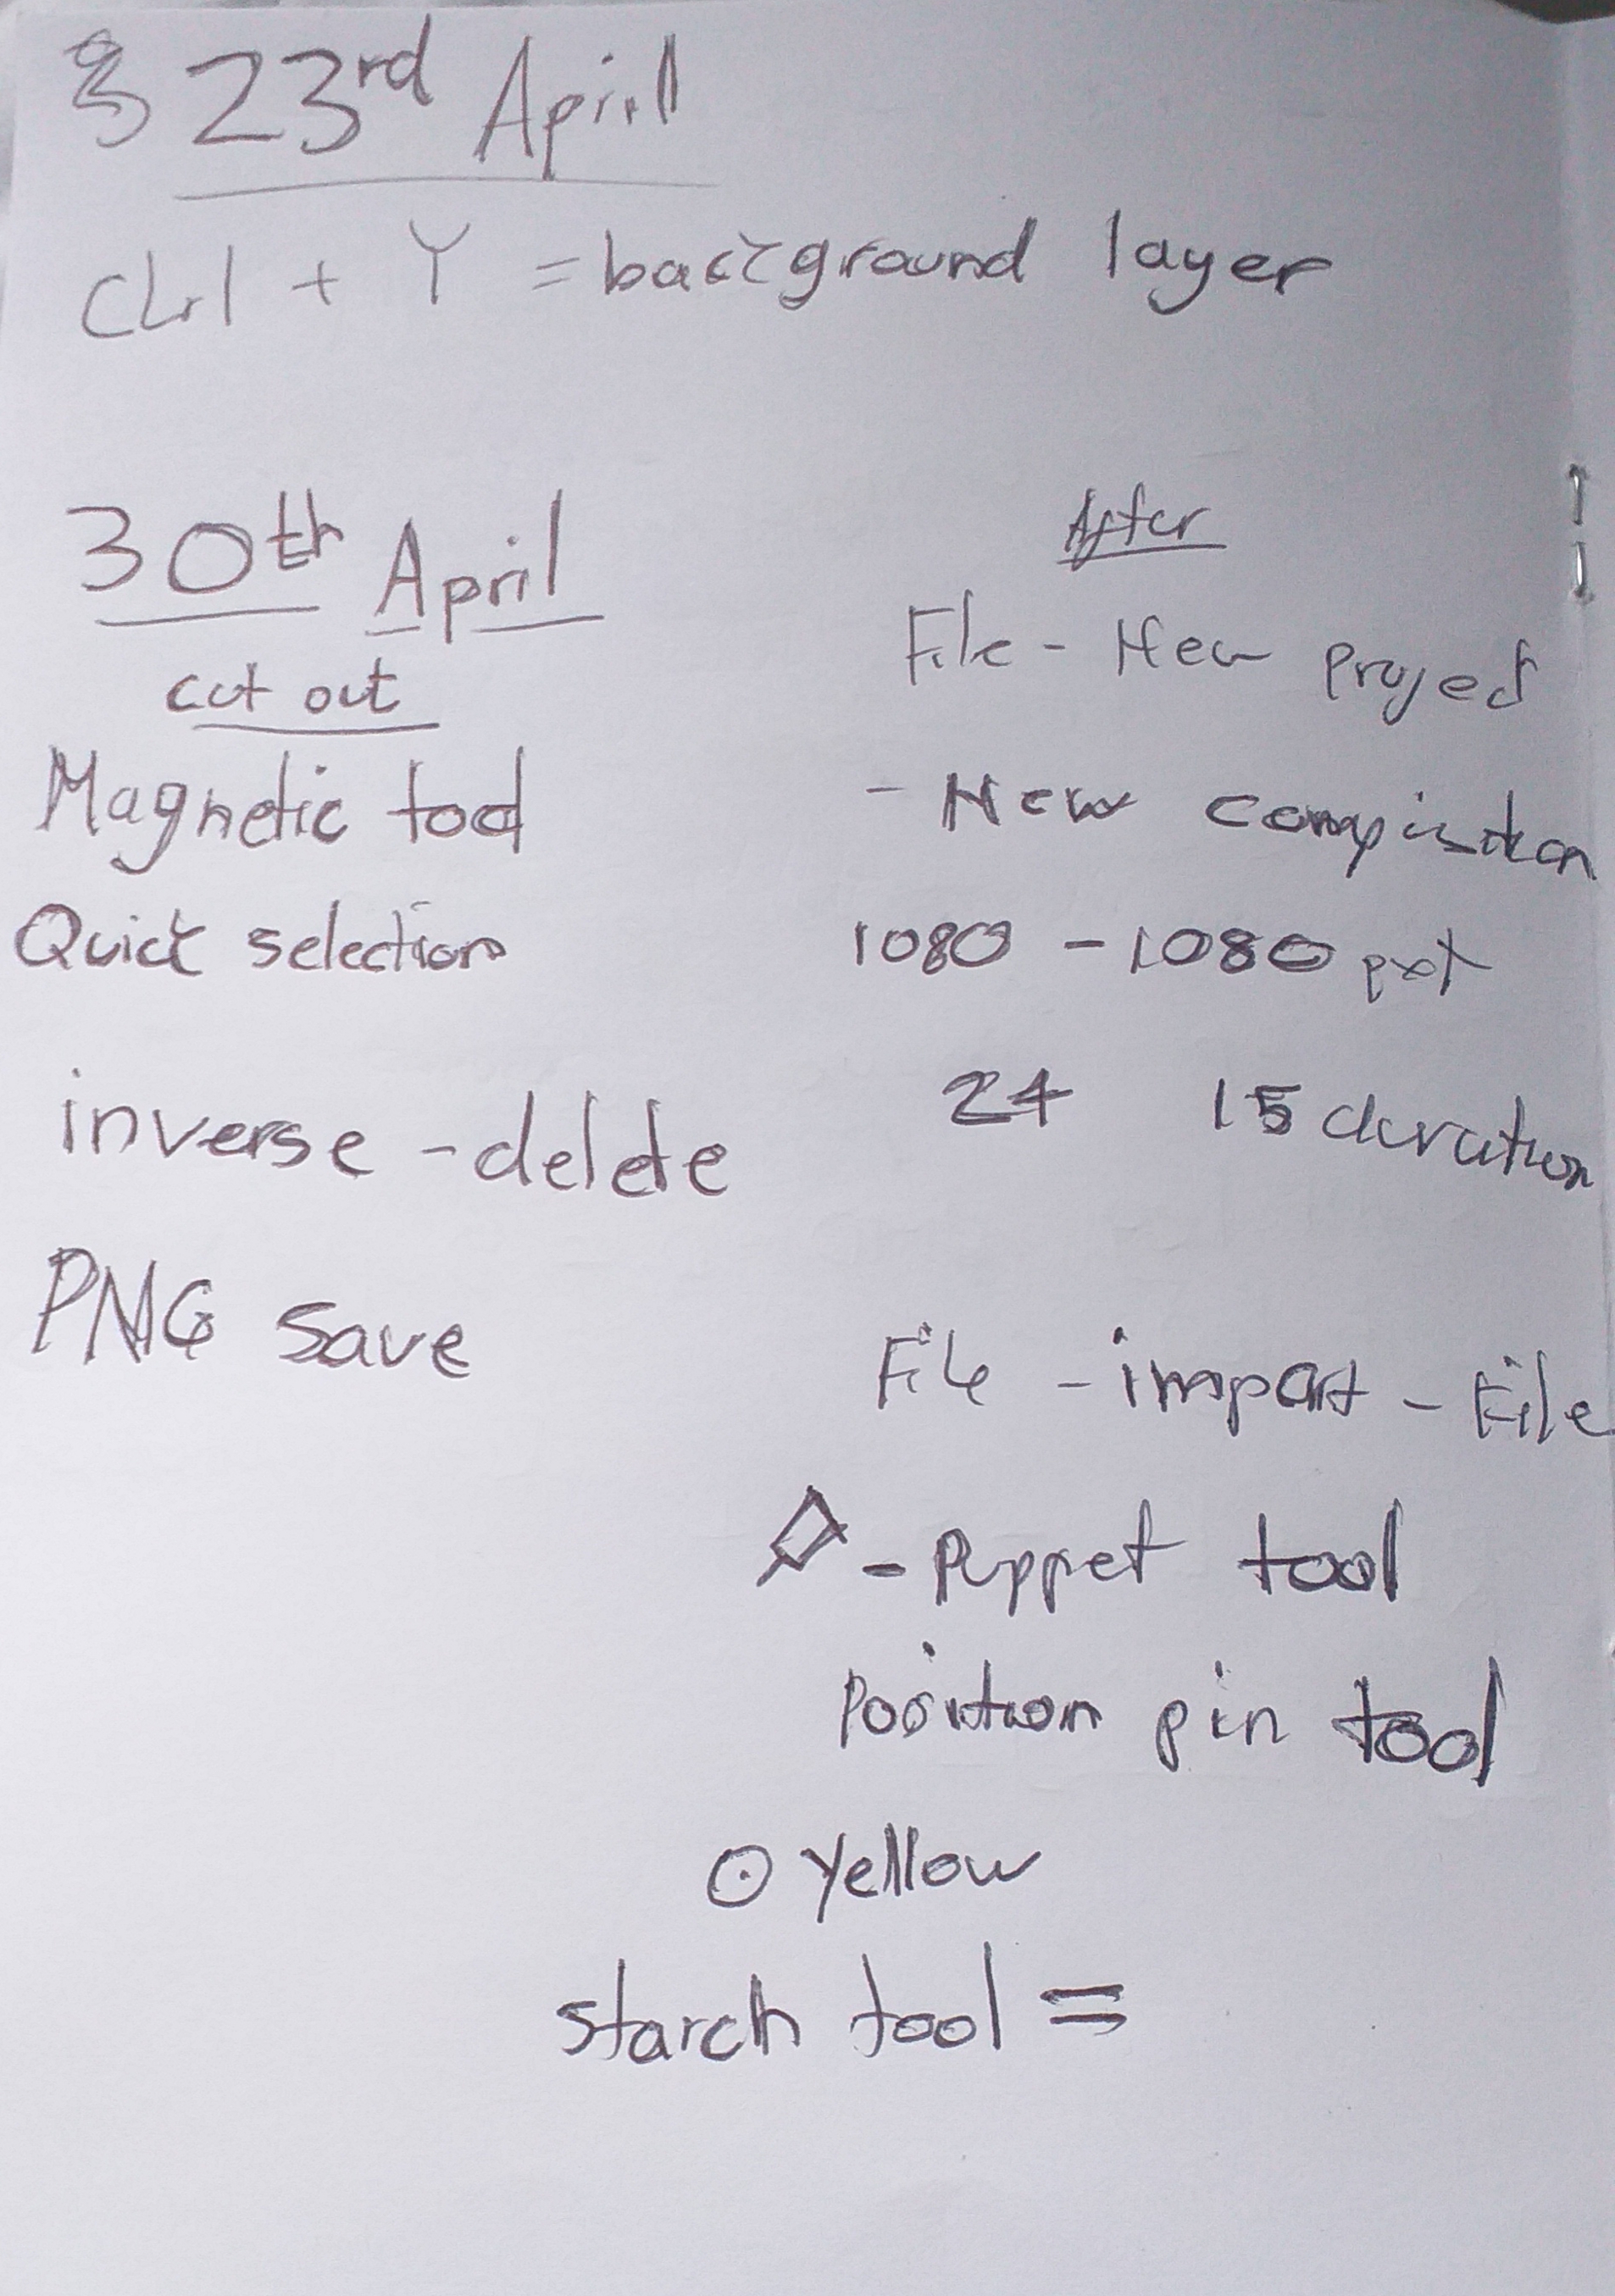 23rd April
Ctrl + Y = background layer
30th April
cut out
Magnetic tool
Quick selection
inverse - delete
PNG save
After
File - New project
- New
1080 - 1080
24 15 duration
File - import - File
- Puppet tool
Position pin tool
yellow
starch tool =